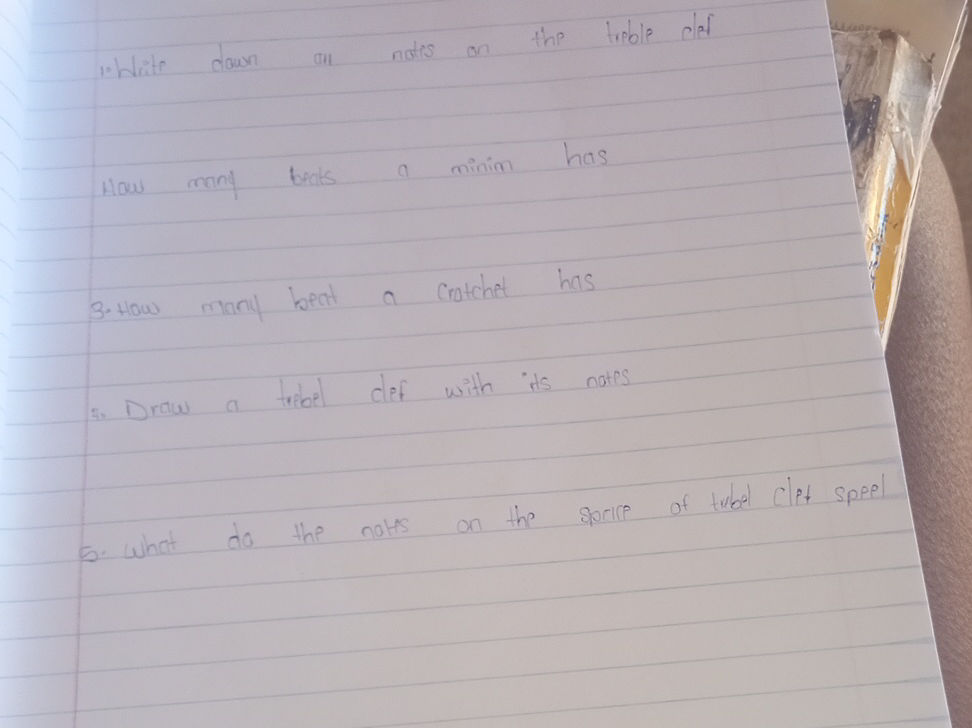 1. Write down all notes on the treble clef
How many beats a minim has
3. How many beat a cratchet has
5. Draw a trebel clef with its notes
5. What do the notes on the sprice of trebel clef speel